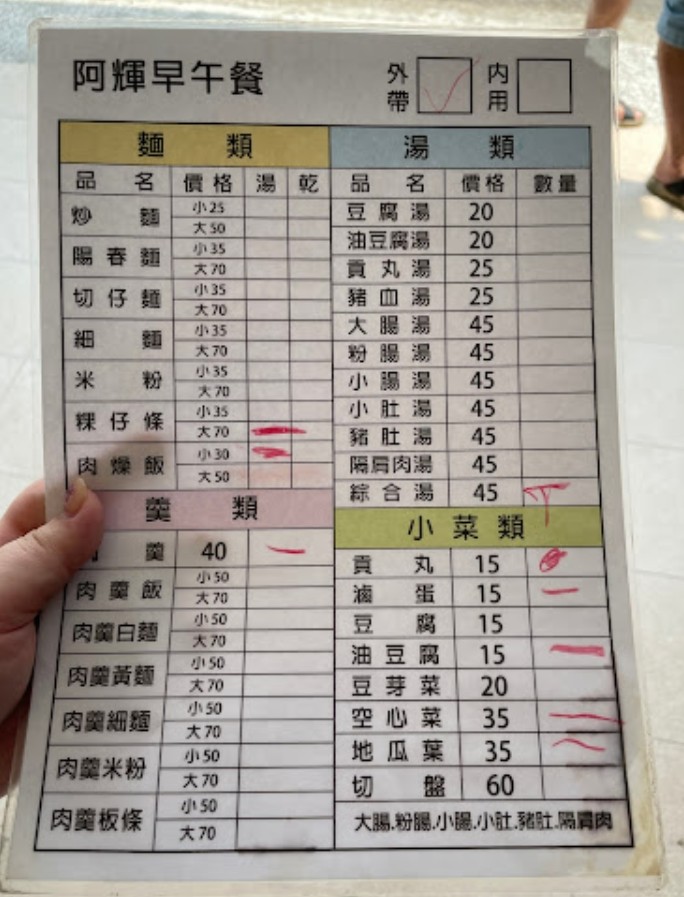 阿輝早午餐
外帶 內用
麵類
品名 價格 湯 乾
炒麵 小25 大50
陽春麵 小35 大70
切仔麵 小35 大70
細麵 小35 大70
米粉 小35 大70
粿仔條 小35 大70
肉燥飯 小30 大50
羹類
羹 40
肉羹飯 小50 大70
肉羹白麵 小50 大70
肉羹黃麵 小50 大70
肉羹細麵 小50 大70
肉羹米粉 小50 大70
肉羹板條 小50 大70
湯類
品名 價格 數量
豆腐湯 20
油豆腐湯 20
貢丸湯 25
豬血湯 25
大腸湯 45
粉腸湯 45
小腸湯 45
小肚湯 45
豬肚湯 45
隔肩肉湯 45
綜合湯 45
小菜類
貢丸 15
滷蛋 15
豆腐 15
油豆腐 15
豆芽菜 20
空心菜 35
地瓜葉 35
切盤 60
大腸.粉腸.小腸.小肚.豬肚.隔肩肉